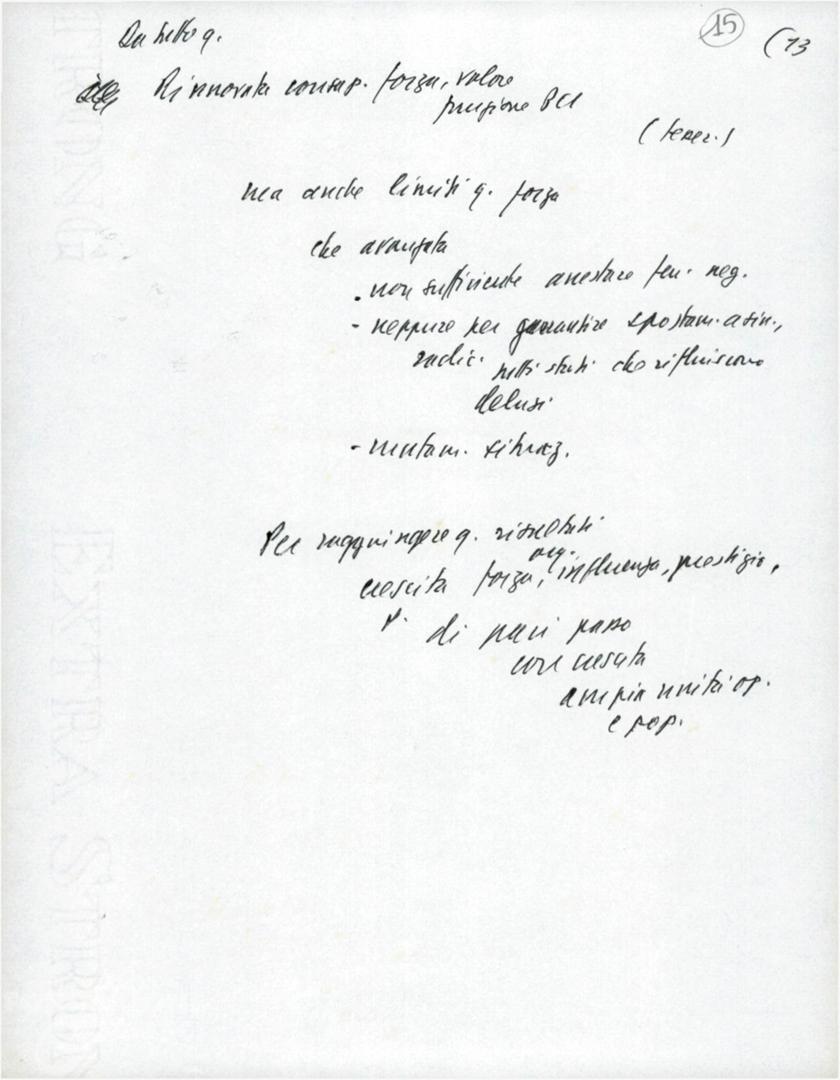 15
(13
Da tutto q.
Rinnovata consap. forza, valore
funzione PCI
(tener.)
ma anche limiti q. forza
che avanzata
. non sufficiente arrestare fen. neg.
- neppure per garantire spostam. a sin.,
radic. tutti strati che rifluiscono
delusi
- mutam. situaz.
Per raggiungere q. risultati
org.
crescita forza, influenza, prestigio,
P. di pari passo
con crescita
ampia unità op.
e pop.
EXTRA STRONG